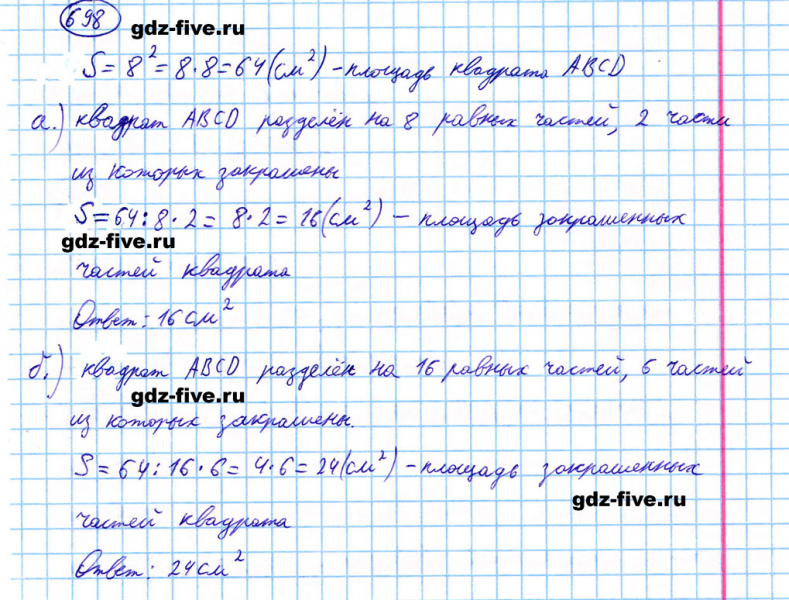 698 gdz-five.ru
S = 8² = 8·8 = 64 (см²) – площадь квадрата ABCD
а.) квадрат ABCD разделён на 8 равных частей, 2 части
из которых закрашены
S = 64 : 8 · 2 = 8 · 2 = 16 (см²) – площадь закрашенных
gdz-five.ru
частей квадрата
Ответ: 16 см²
б.) квадрат ABCD разделён на 16 равных частей, 6 частей
gdz-five.ru
из которых закрашены.
S = 64 : 16 · 6 = 4 · 6 = 24 (см²) – площадь закрашенных
gdz-five.ru
частей квадрата
Ответ: 24 см²